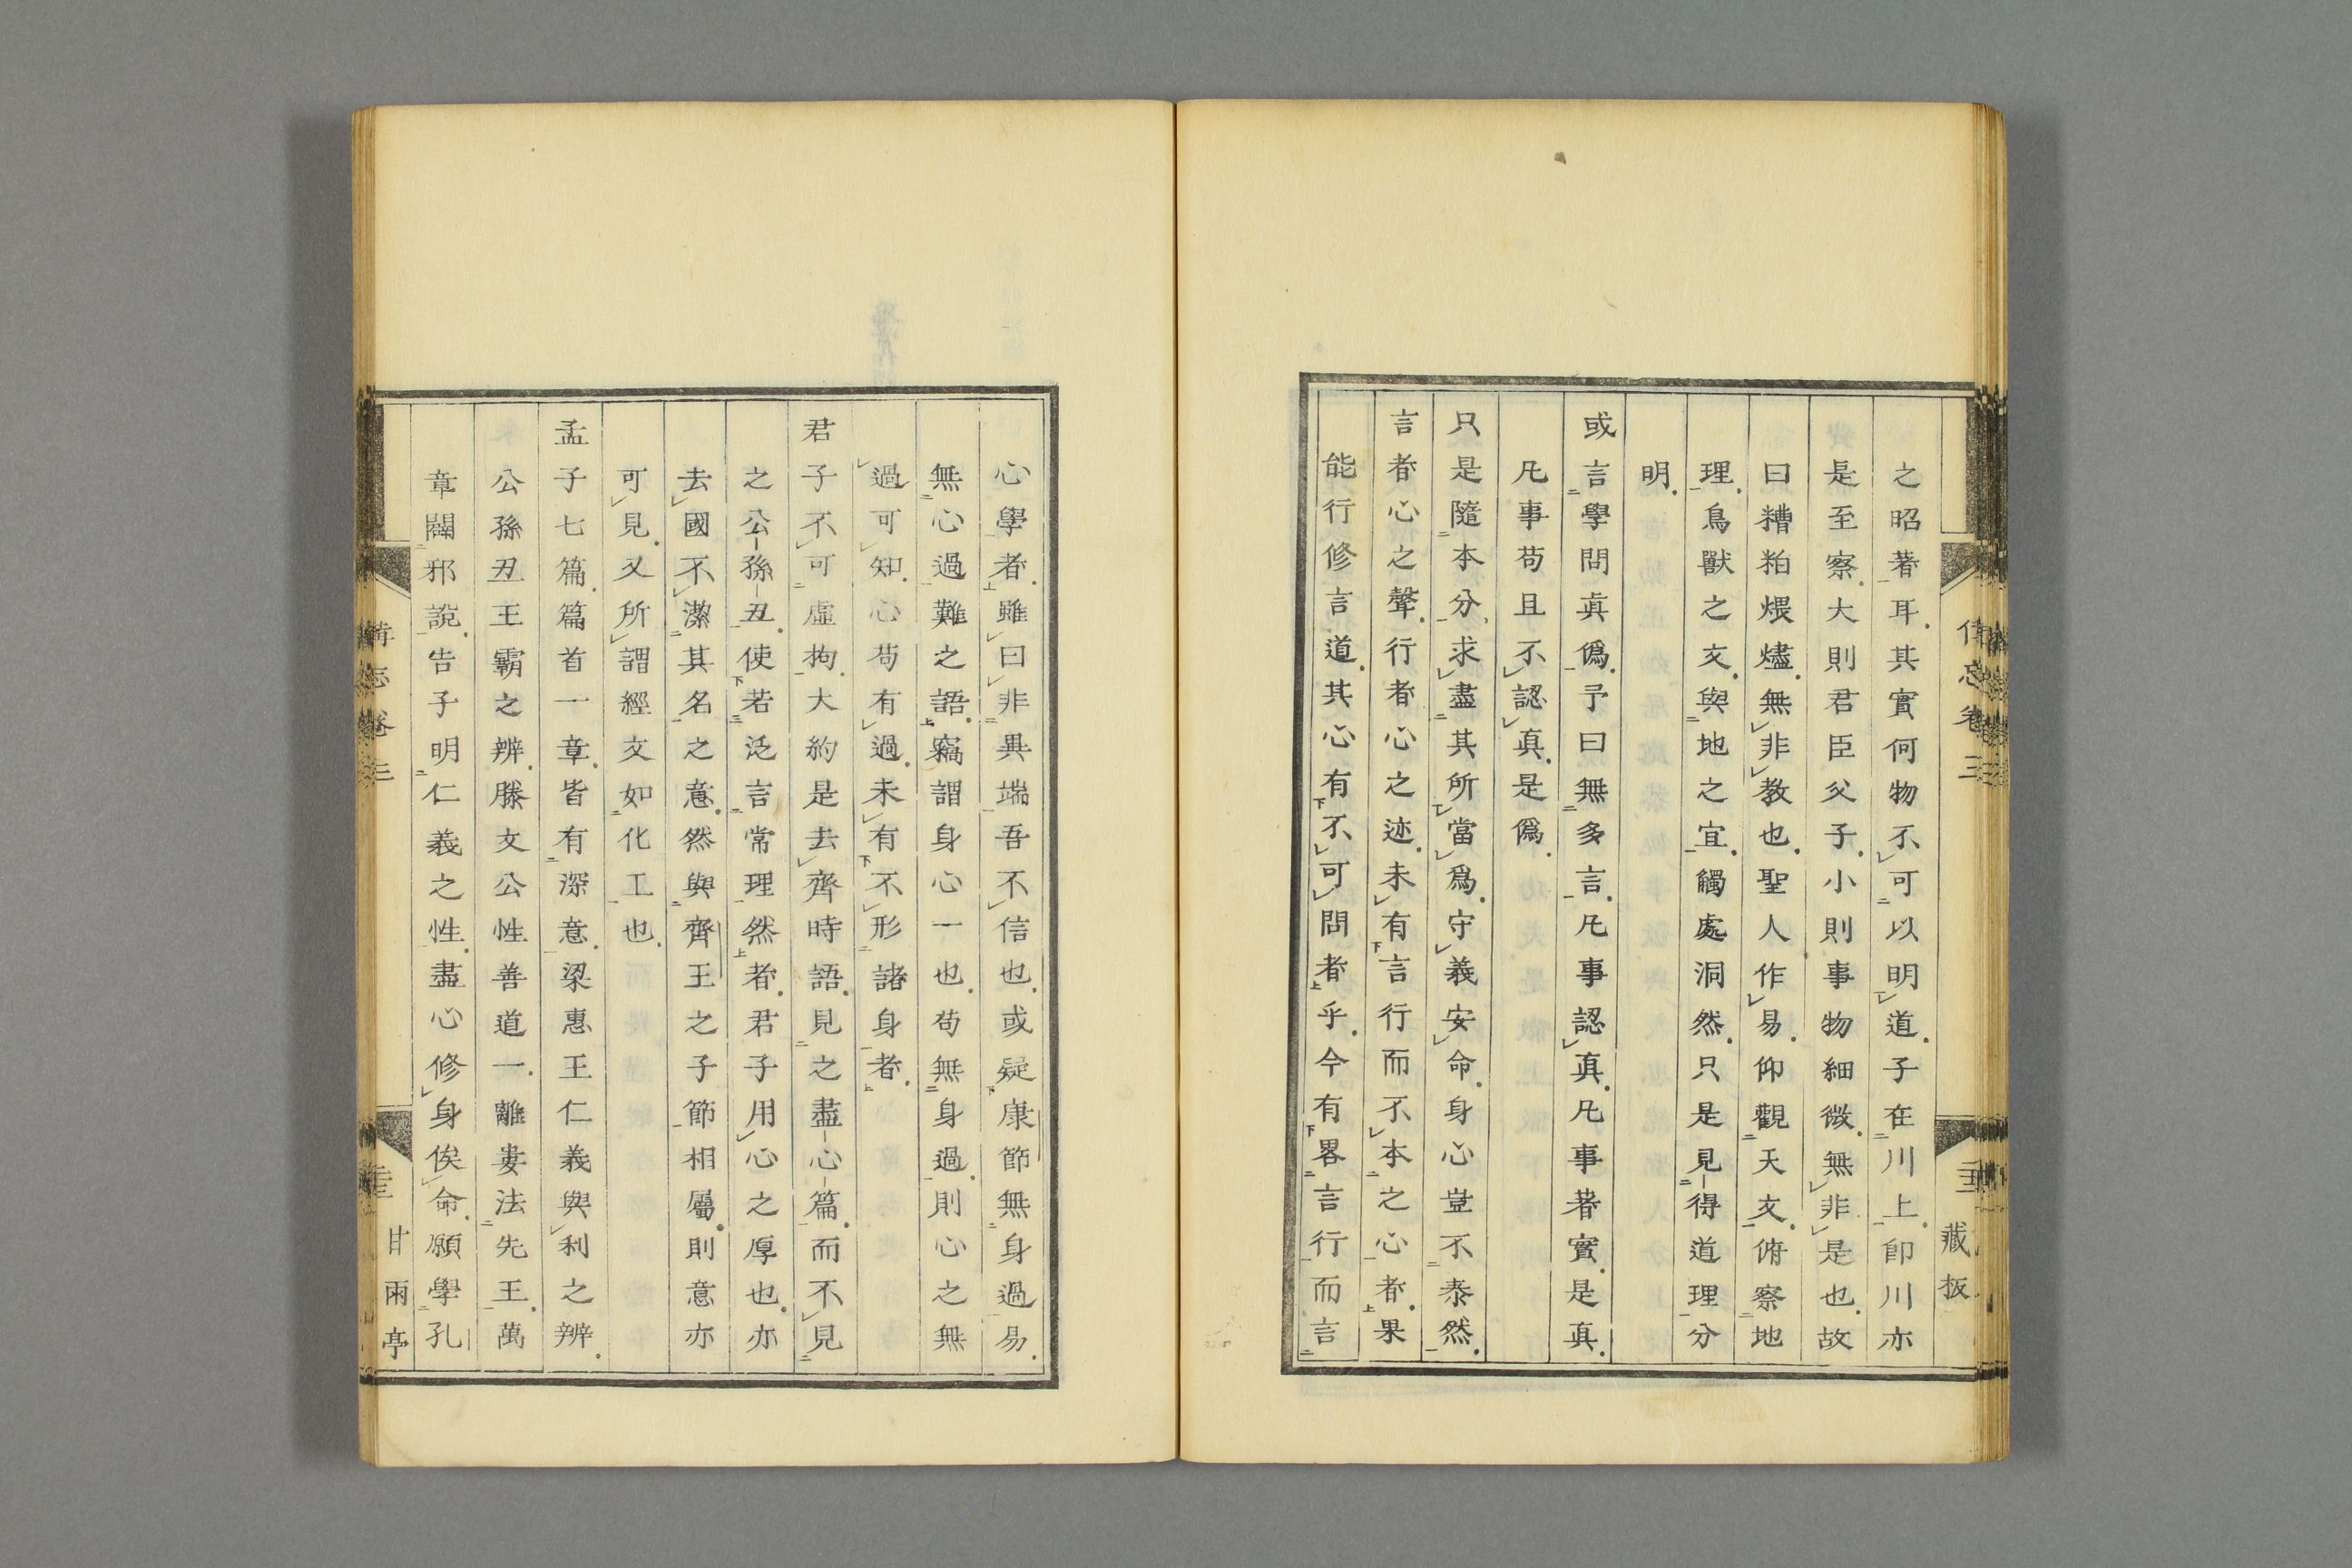 之昭著耳其實何物不可以明道子在川上卽川亦
是至察大則君臣父子小則事物細微無非是也故
曰糟粕煨燼無非教也聖人作易仰觀天文俯察地
理鳥獸之文與地之宜觸處洞然只是見得道理分
明
或言學問眞僞予曰無多言凡事認眞凡事著實是眞
凡事苟且不認眞是僞
只是隨本分求盡其所當爲守義安命身心豈不泰然
言者心之聲行者心之迹未有言行而不本之心者果
能行修言道其心有不可問者乎今有畧言行而言
藏板
心學者雖曰非異端吾不信也或疑康節無身過易
無心過難之語竊謂身心一也苟無身過則心之無
過可知心苟有過未有不形諸身者
君子不可虛拘大約是去齊時語見之盡心篇而不見
之公孫丑使若泛言常理然者君子用心之厚也亦
去國不潔其名之意然與齊王之子節相屬則意亦
可見又所謂經文如化工也
孟子七篇篇首一章皆有深意梁惠王仁義與利之辨
公孫丑王霸之辨滕文公性善道一離婁法先王萬
章闢邪說告子明仁義之性盡心修身俟命願學孔
甘雨亭